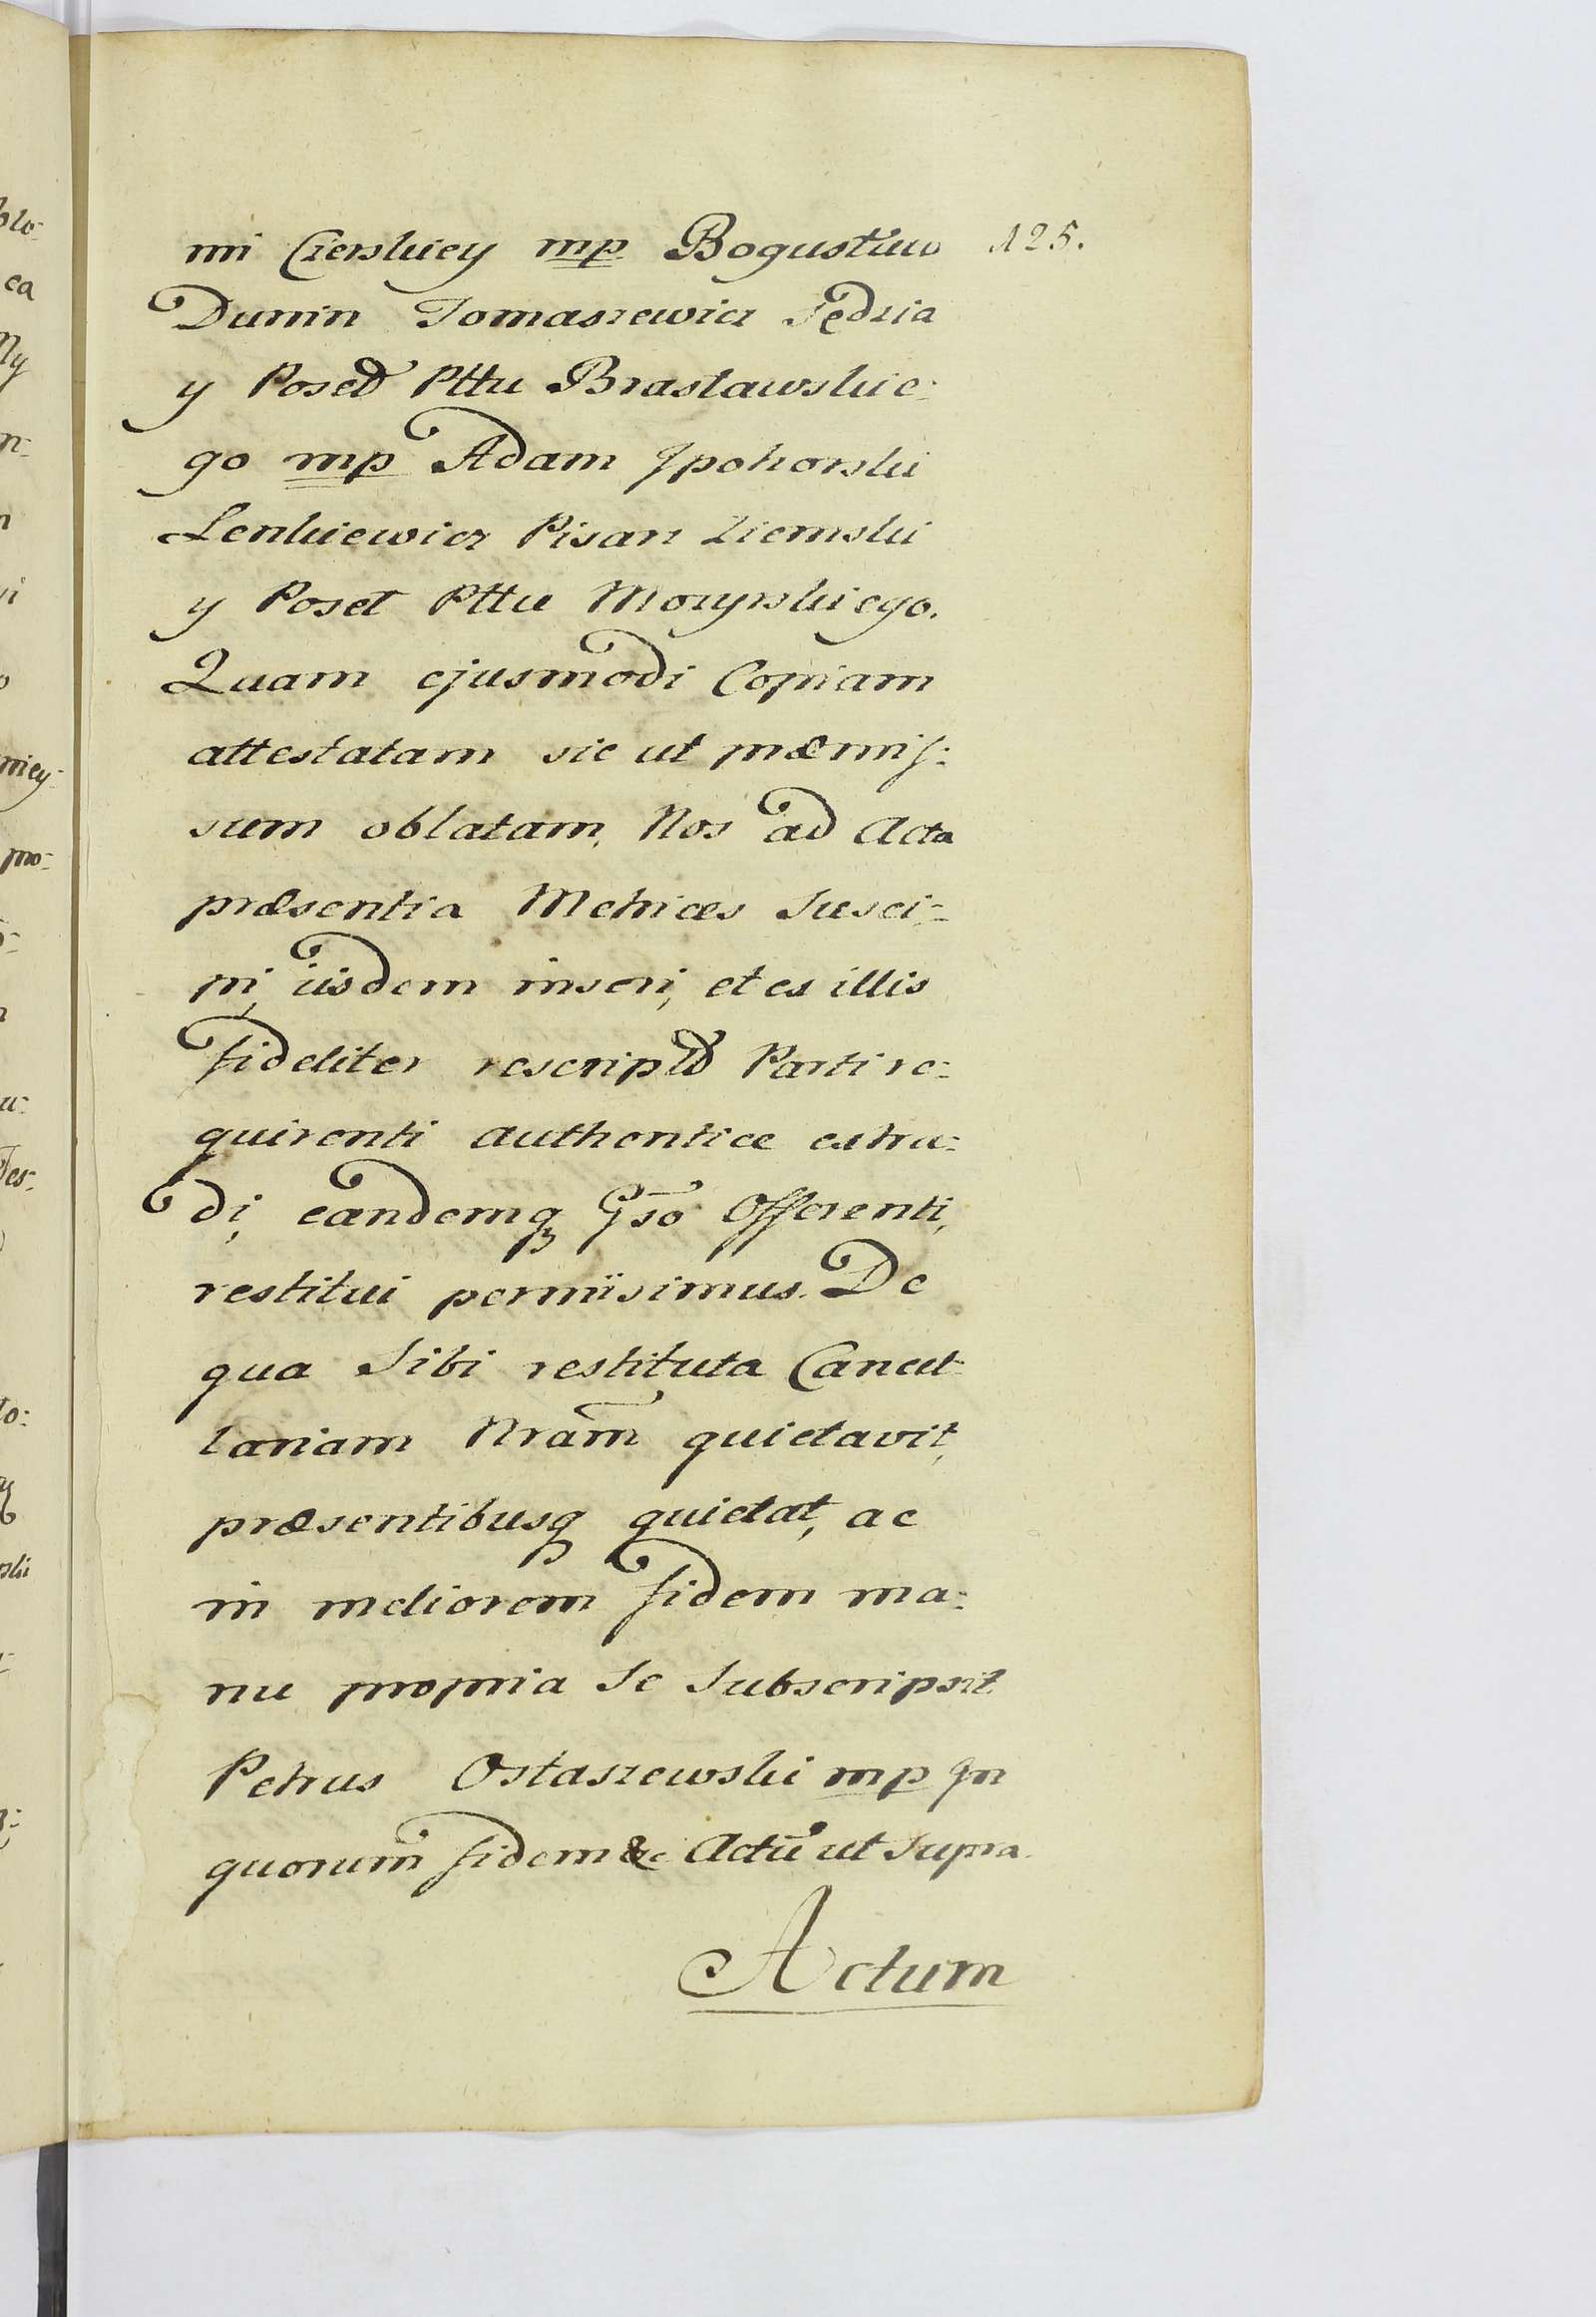 mi Czerskiey mp Bogusław 125.
Dunin Tomaszewicz Sędzia
y Poseł Pttu Brasławskie-
go mp Adam Jpohorski
Lenkiewicz Pisarz Ziemski
y Poseł Pttu Mozyrskiego.
Quam ejusmodi Copiam
attestatam sic ut præmis-
sum oblatam, Nos ad Acta
præsentia Metrices Susci-
pi, iisdem inseri, et ex illis
fideliter rescriptā Parti re-
quirenti authentice extra-
di, eandemq Gso Offerenti,
restitui permisimus. De
qua Sibi restituta Cancel-
lariam Nram quietavit,
præsentibusq quietat, ac
in meliorem fidem ma-
nu propria Se Subscripsit
Petrus Ostaszewski mp Jn
quorum fidem &c Actū ut Supra
Actum